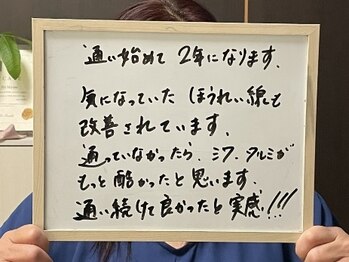 通い始めて 2年になります.
気になっていた ほうれい線も
改善されています.
通っていなかったら、シワ、タルミが
もっと酷かったと思います.
通い続けて良かったと実感!!!